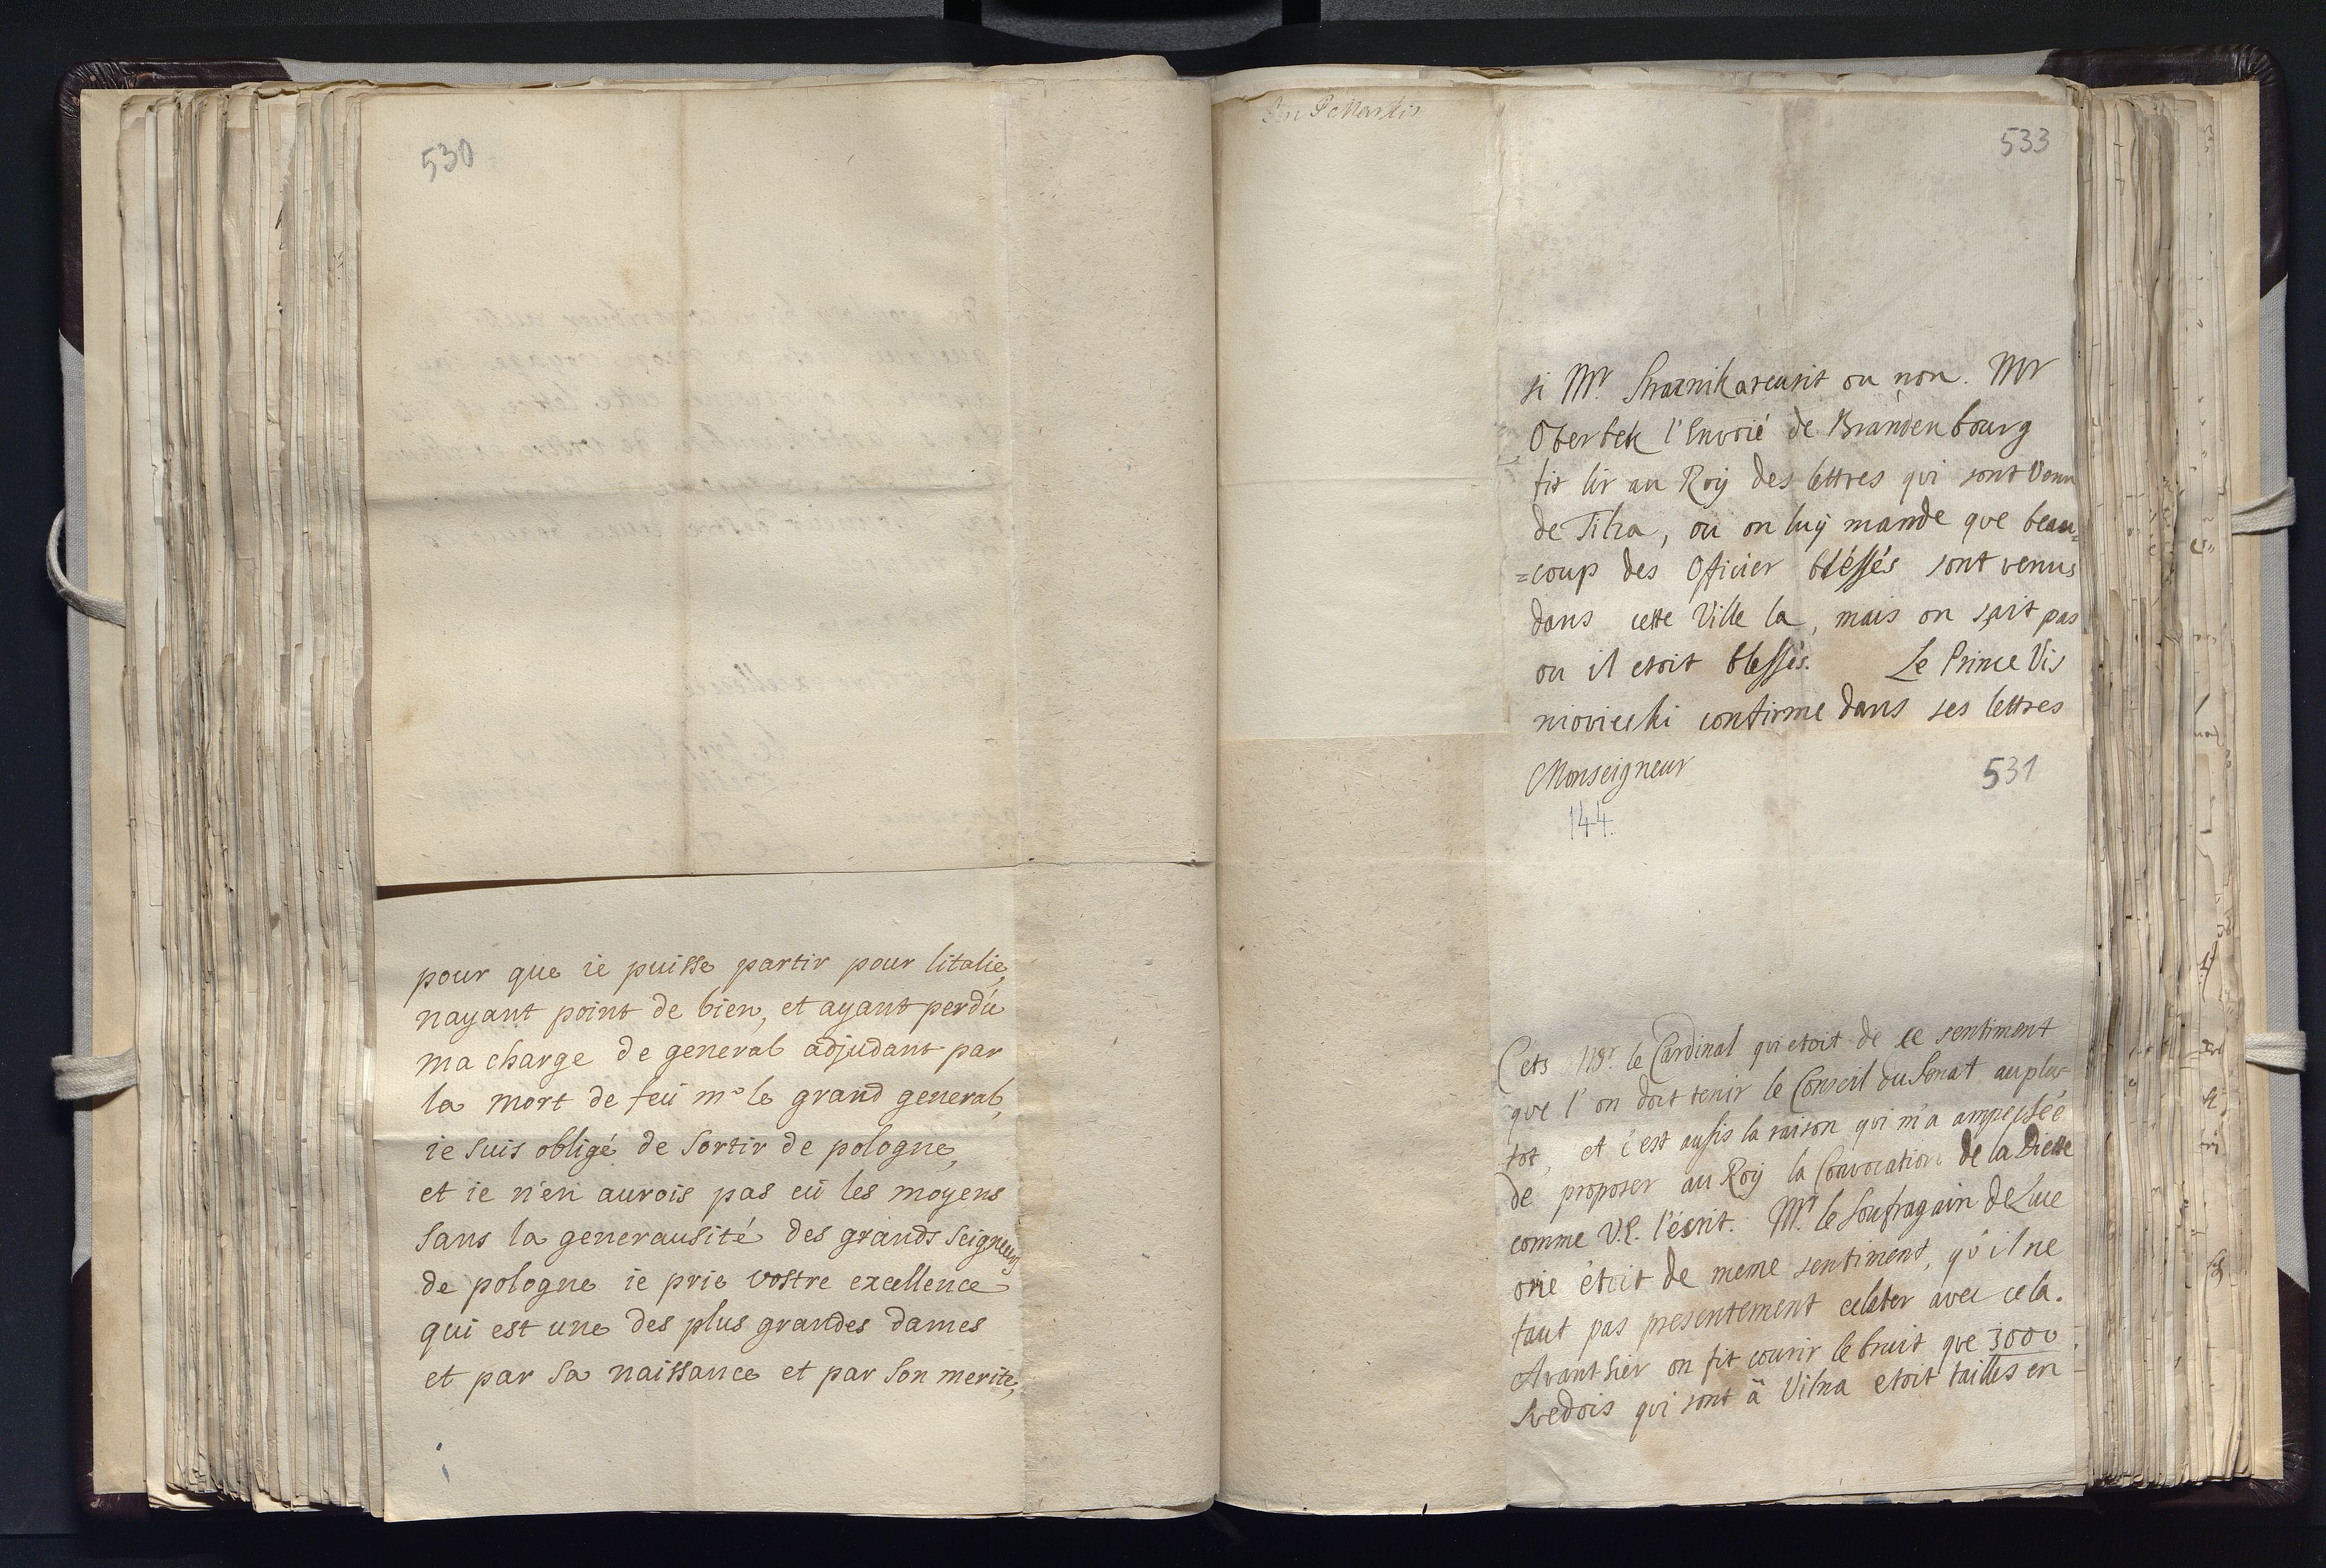 530
pour que ie puisse partir pour litalie,
nayant point de bien, et ayant perdu
ma charge de general adjudant par
la mort de feü mr le grand general,
ie suis obligé de sortir de pologne,
et ie n'en aurois pas eü les moyens
sans la generausité des grands seigneurs
de pologne ie prie vostre excellence
qui est une des plus grandes dames
et par sa naissance et par son merite,
533
si Mr. ou non. Mr
Oberbek l'Envoié de Brandenbourg
fit lir au Roÿ des lettres qui sont venu
de Tilza, ou on luÿ mande que beau=
=coup des Officier bléssés sont venus
dans cette Ville la, mais on sçait pas
ou il etoit blessés. Le Prince Vis
niovieçki confirme dans ses lettres
Monseigneur
531
144.
Cets Msr. le Cardinal qui etoit de ce sentiment
que l'on doit tenir le Conseil du Senat au plu-
tot, et c'est aussis la raison qui m'a ampeçsée
de proposer au Roÿ la Convocation de la Diette
comme V.E. l'écrit. Mr. le Soufragain de Luce
orie étoit de meme sentiment, qu'il ne
faut pas presentement eclater avec cela.
Avanthier on fit courir le bruit que 3000
Svedois qui sont à Vilna etoit taillés en